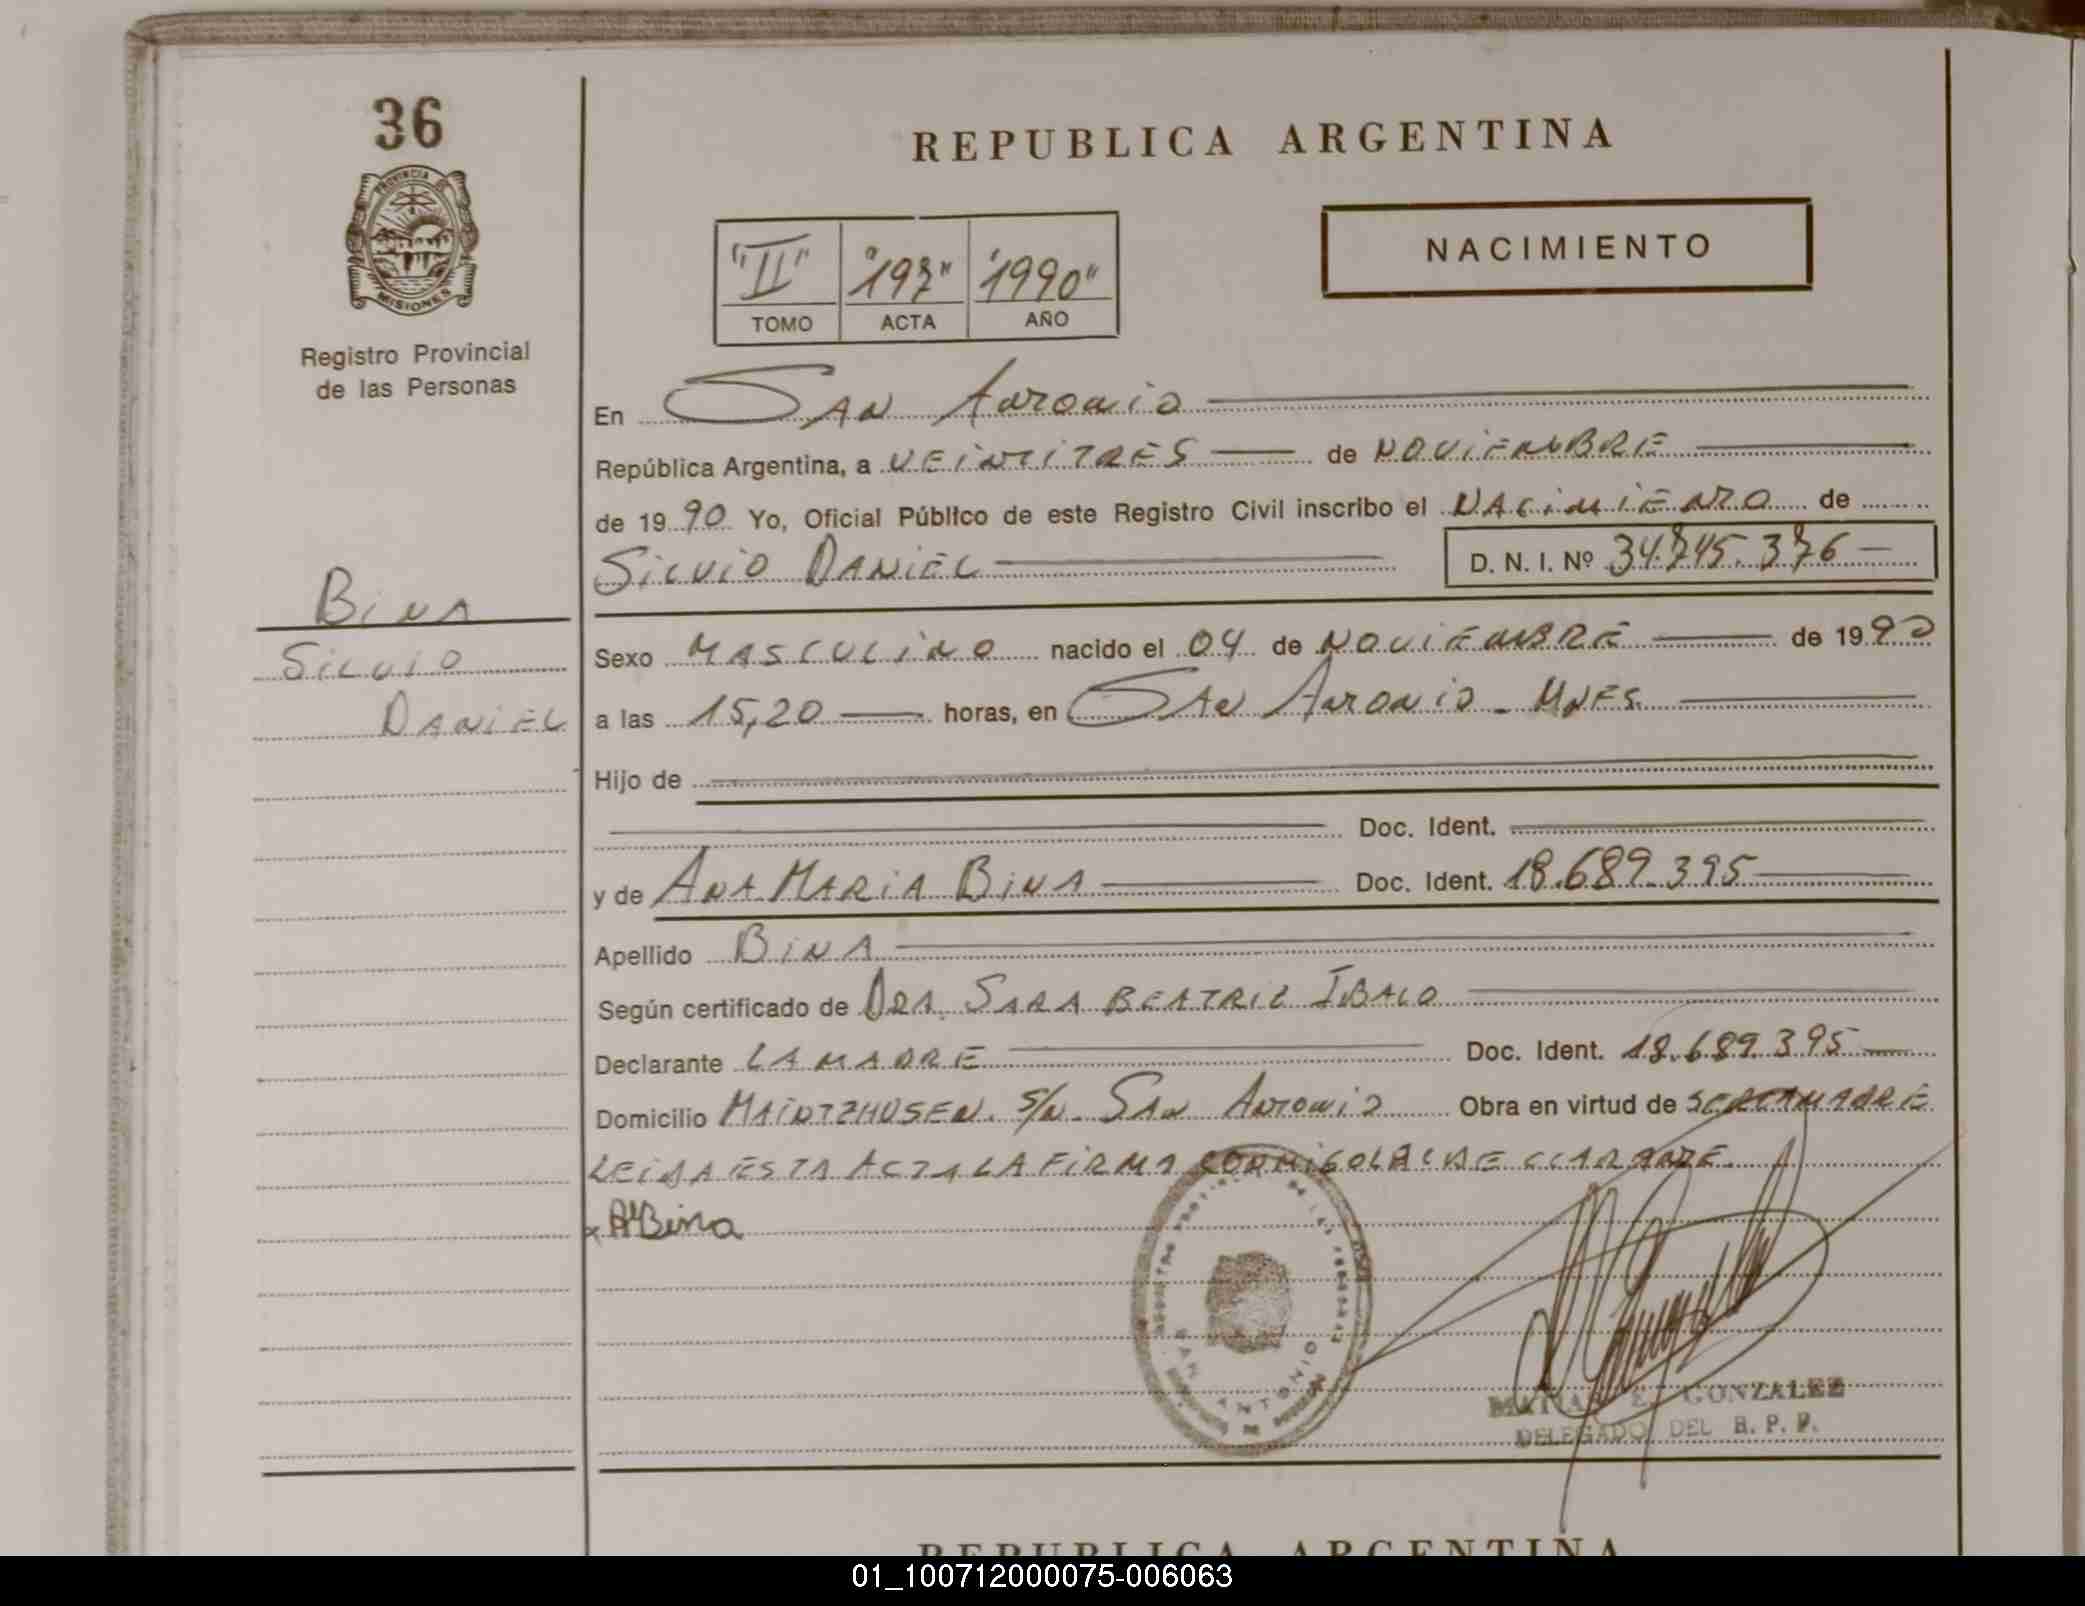 36
PROVINCIA DE
MISIONES
Registro Provincial
de las Personas
REPUBLICA ARGENTINA
NACIMIENTO
"II" "197" "1990"
TOMO ACTA AÑO
En SAN ANTONIO
República Argentina, a VEINTITRES de NOVIEMBRE
de 1990 Yo, Oficial Público de este Registro Civil inscribo el NACIMIENTO de
SILVIO DANIEL D. N. I. Nº 34.745.376
BINA
SILVIO
DANIEL
Sexo MASCULINO nacido el 04 de NOVIEMBRE de 1990
a las 15,20 horas, en SAN ANTONIO - MNES.
Hijo de
Doc. Ident.
y de ANA MARIA BINA Doc. Ident. 18.689.395
Apellido BINA
Según certificado de DRA. SARA BEATRIZ IBALO
Declarante LA MADRE Doc. Ident. 18.689.395
Domicilio MAINTZHUSEN. S/N. SAN ANTONIO Obra en virtud de SER LA MADRE
LEIDA ESTA ACTA LA FIRMA CONMIGO LA DECLARANTE
x AMBina
SAN ANTONIO
MATIAS E. GONZALEZ
DELEGADO DEL R. P. P.
REPUBLICA ARGENTINA
01_100712000075-006063